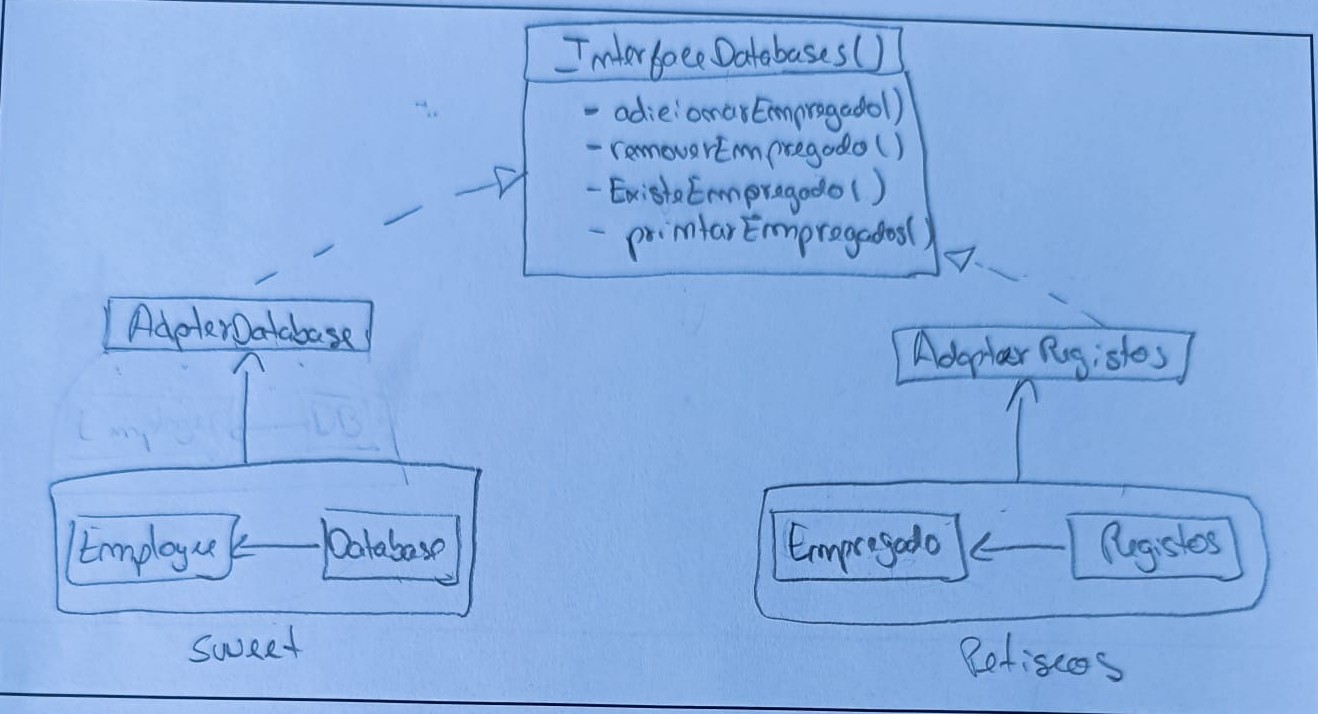 InterfaceDatabases()
- adicionarEmpregado()
- removerEmpregado()
- ExisteEmpregado()
- printarEmpregados()
AdpterDatabase
Adapter Registos
Employee
Database
Empregado
Registos
Sweet
Petiscos